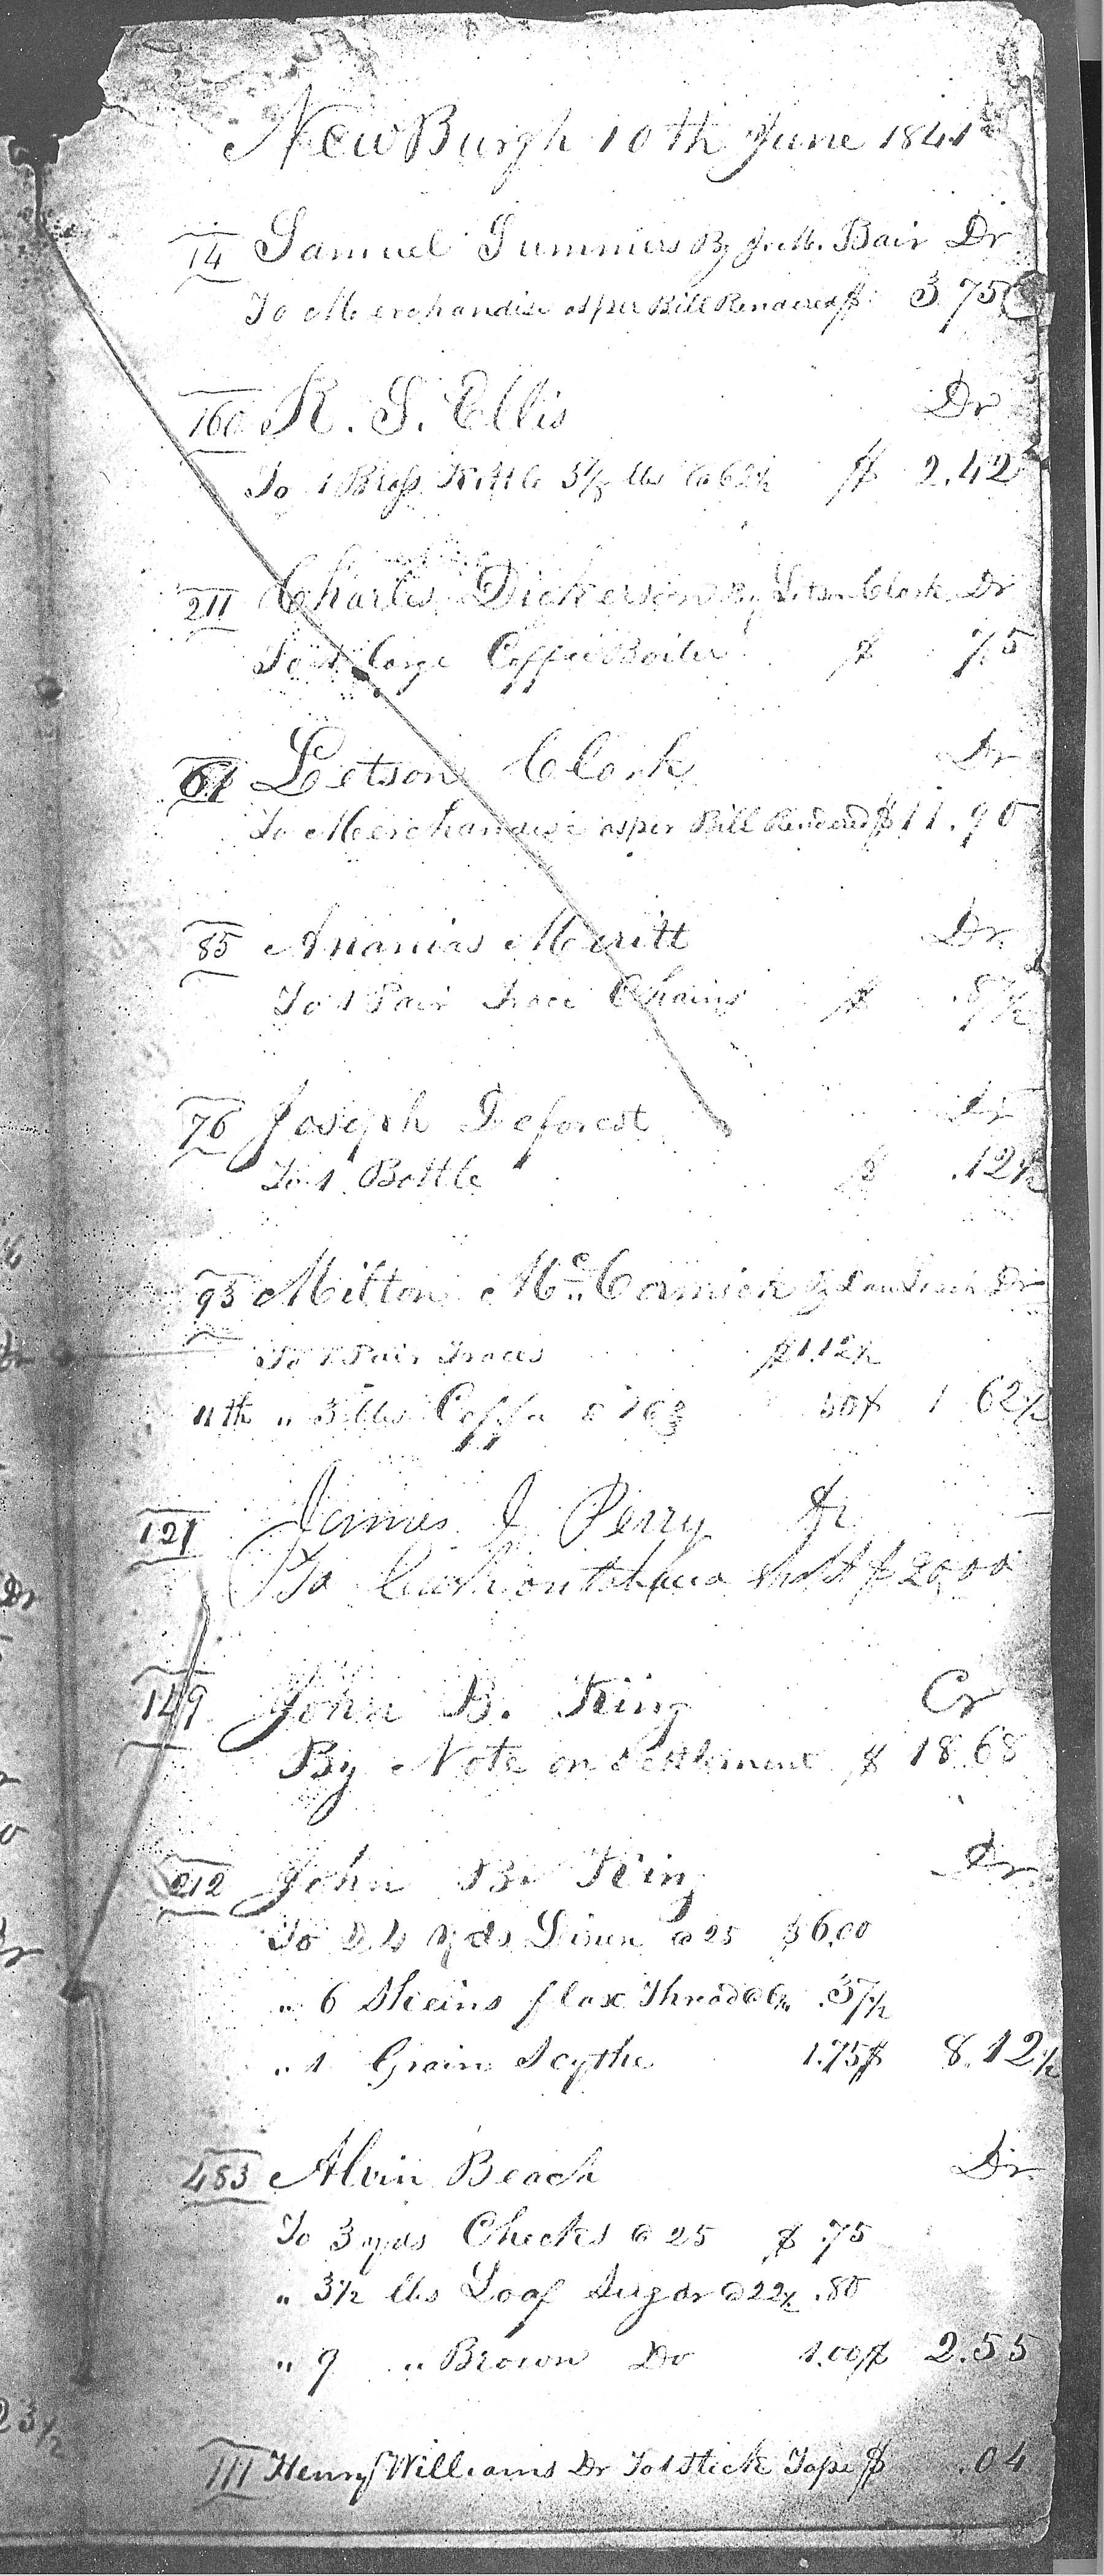 NewBurgh 10th June 1841
14 Samuel Summers By Bair Dr
To Merchandise as per Bill Rendered $ 3.75
160 R. S. Ellis Dr
To 1 Brass Kettle 3 7/8 lbs @ 62½ $ 2.42
211 Charles Dickerson By Letson Clark Dr
To 1 Large Coffee Boiler $ .75
61 Letson Clark Dr
To Merchandise as per Bill Rendered $ 11.90
85 Ananias Merritt Dr
To 1 Pair Trace Chains $ .87½
76 Joseph Deforest Dr
To 1 Bottle $ .12½
93 Milton McCormick By Dr
To 1 Pair Traces $1.12½
11th " 3 lbs Coffee @ 16⅔ 50 $ 1 62½
121 James J Perry Dr
To Cash on $ 20.00
149 John B. King Cr
By Note on Settlement $ 18.68
212 John B. King Dr
To 24 yds Linen @ 25 $6.00
" 6 Skeins flax Thread @ 6¼ .37½
" 1 Grain Scythe 1.75 $ 8.12½
483 Alvin Beach Dr
To 3 yds Checks @ 25 $ .75
" 3½ lbs Loaf Sugar @ 22½ .80
" 9 " Brown Do 1.00 $ 2.55
111 Henry Williams Dr To 1 Stick Tape $ .04
Dr
Dr
23½